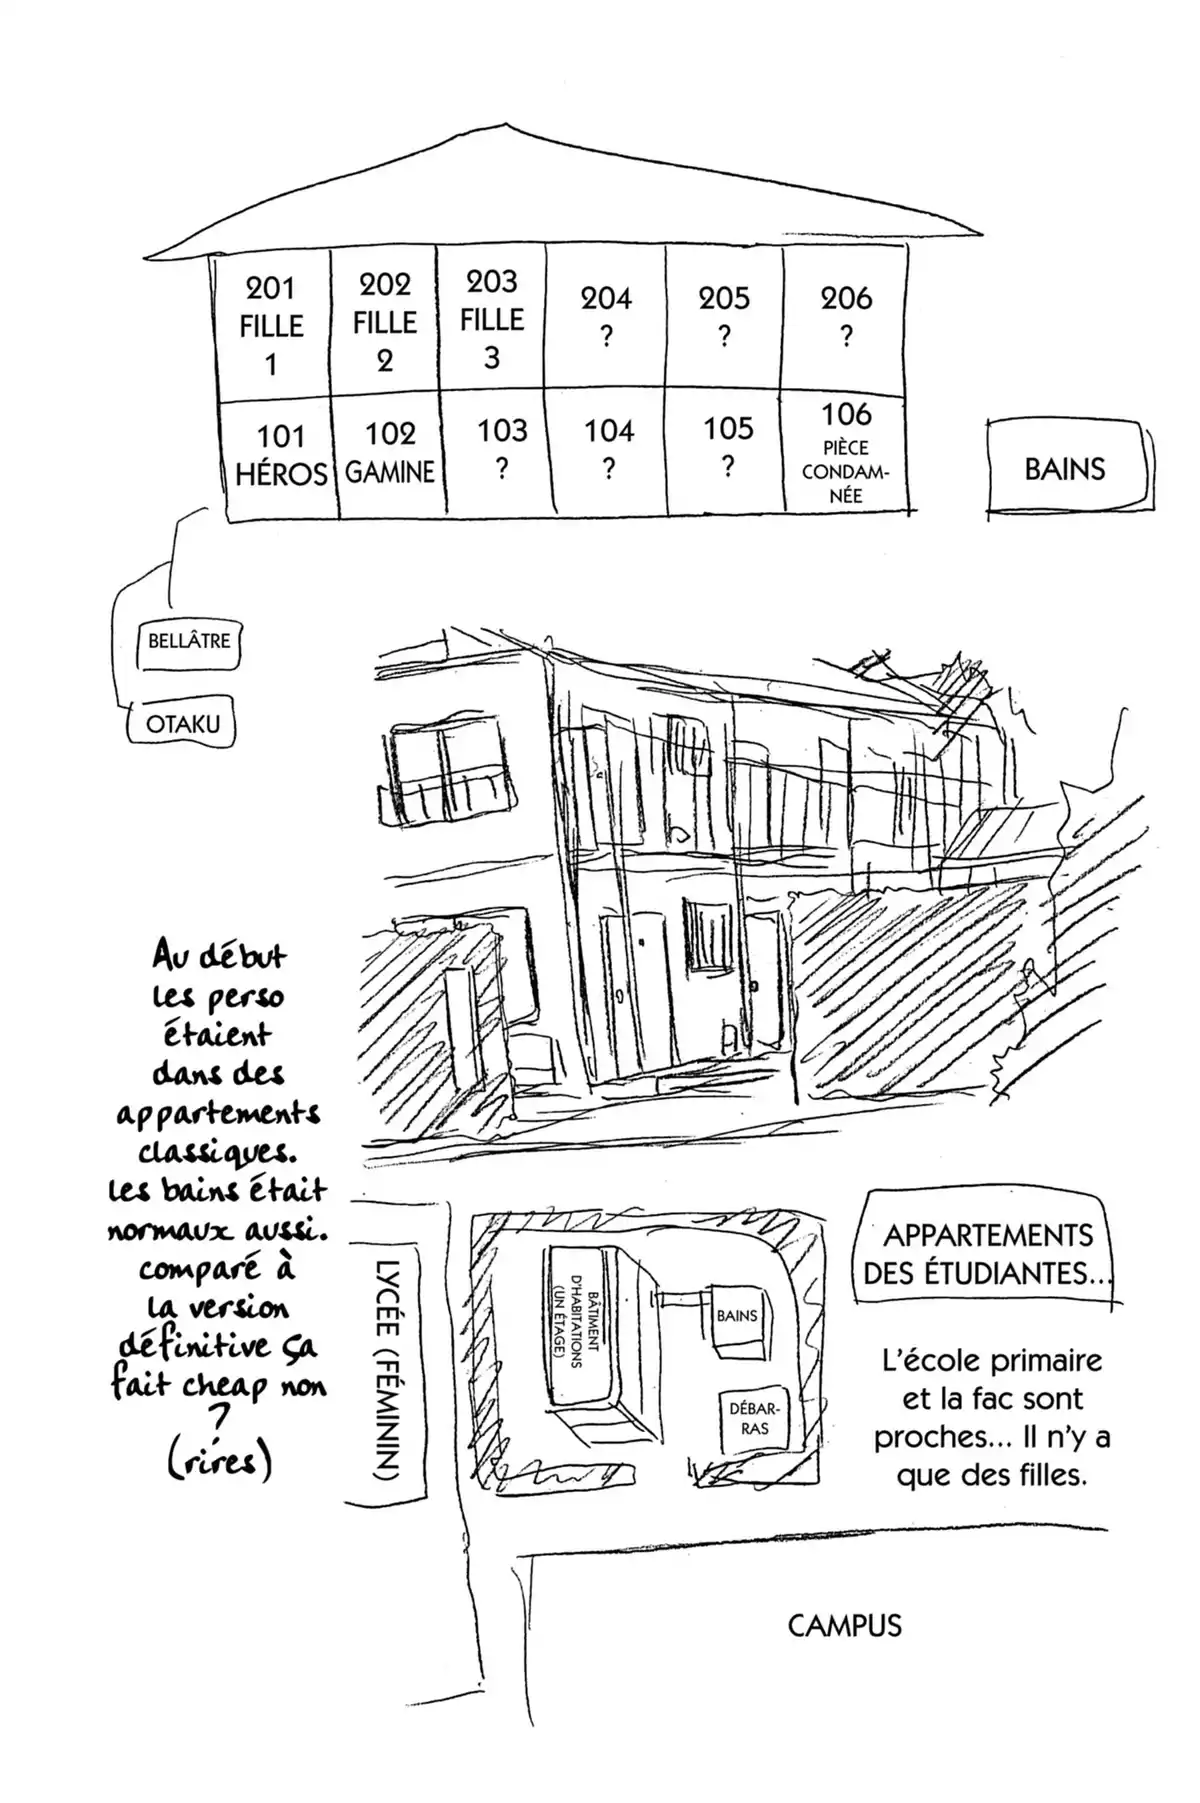 201
FILLE
1
202
FILLE
2
203
FILLE
3
204
?
205
?
206
?
101
HÉROS
102
GAMINE
103
?
104
?
105
?
106
PIÈCE
CONDAM-
NÉE
BAINS
BELLÂTRE
OTAKU
Au début
les perso
étaient
dans des
appartements
classiques.
les bains était
normaux aussi.
comparé à
la version
définitive ça
fait cheap non
?
(rires)
LYCÉE (FÉMININ)
BÂTIMENT
D'HABITATIONS
(UN ÉTAGE)
BAINS
DÉBAR-
RAS
APPARTEMENTS
DES ÉTUDIANTES...
L'école primaire
et la fac sont
proches... Il n'y a
que des filles.
CAMPUS